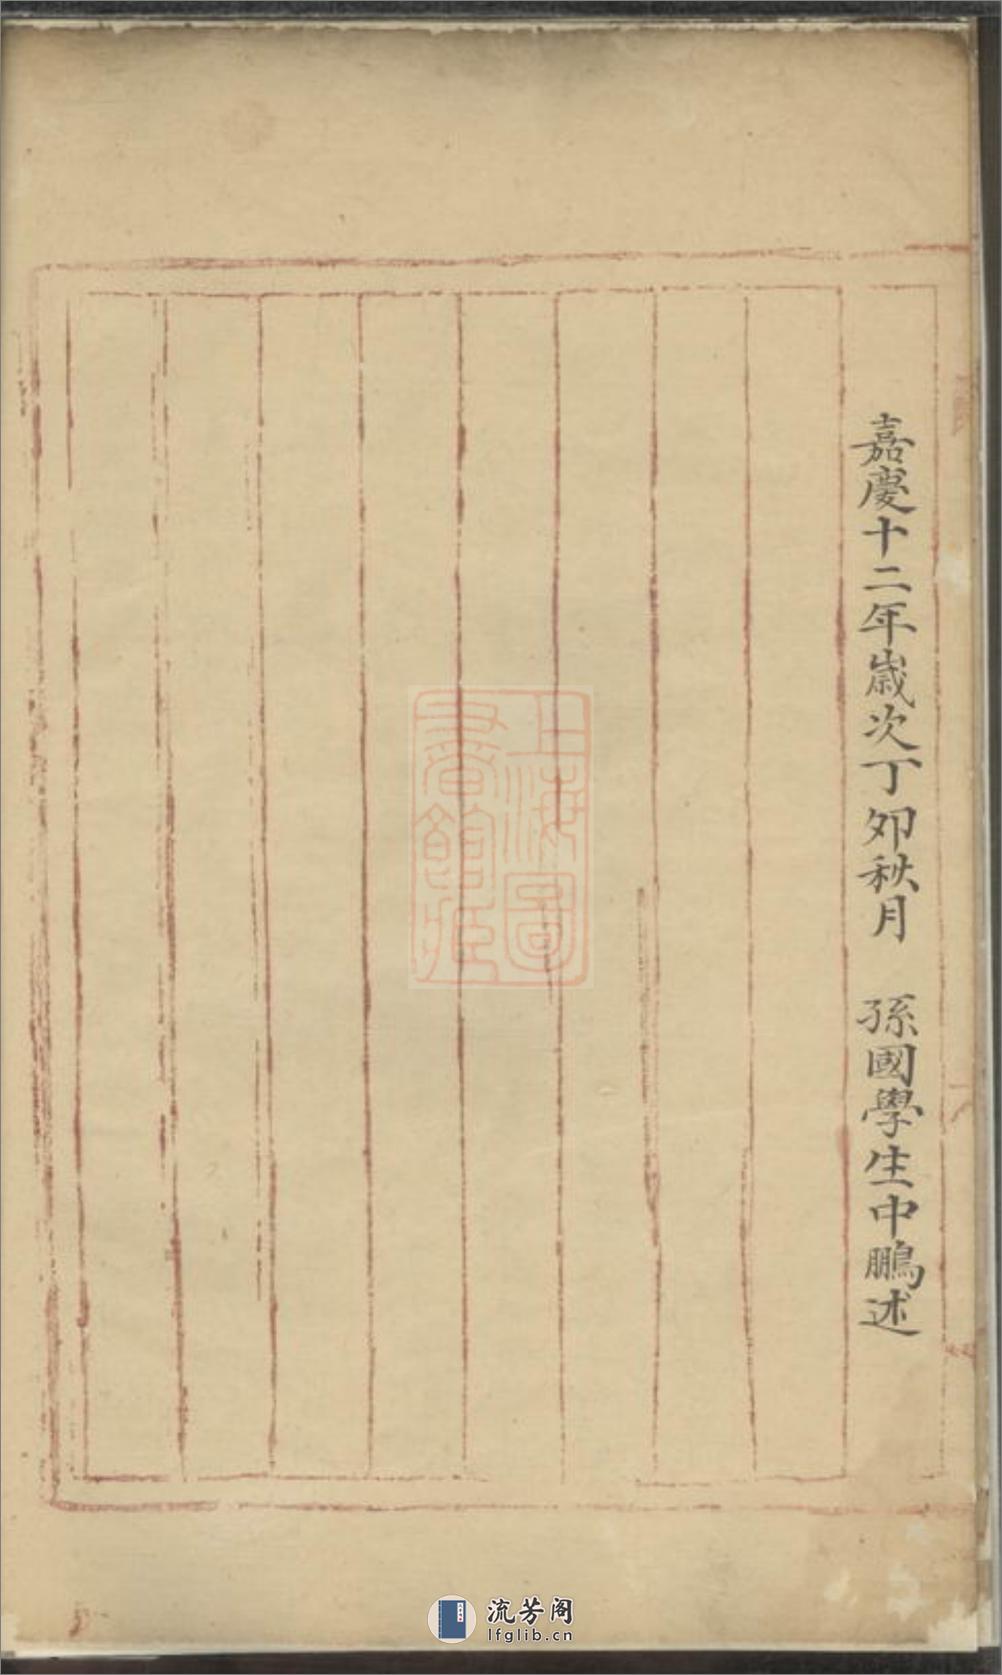 嘉慶十二年歲次丁卯秋月　孫國學生中鵬述
上海圖
書館藏
流芳阁
lfglib.cn